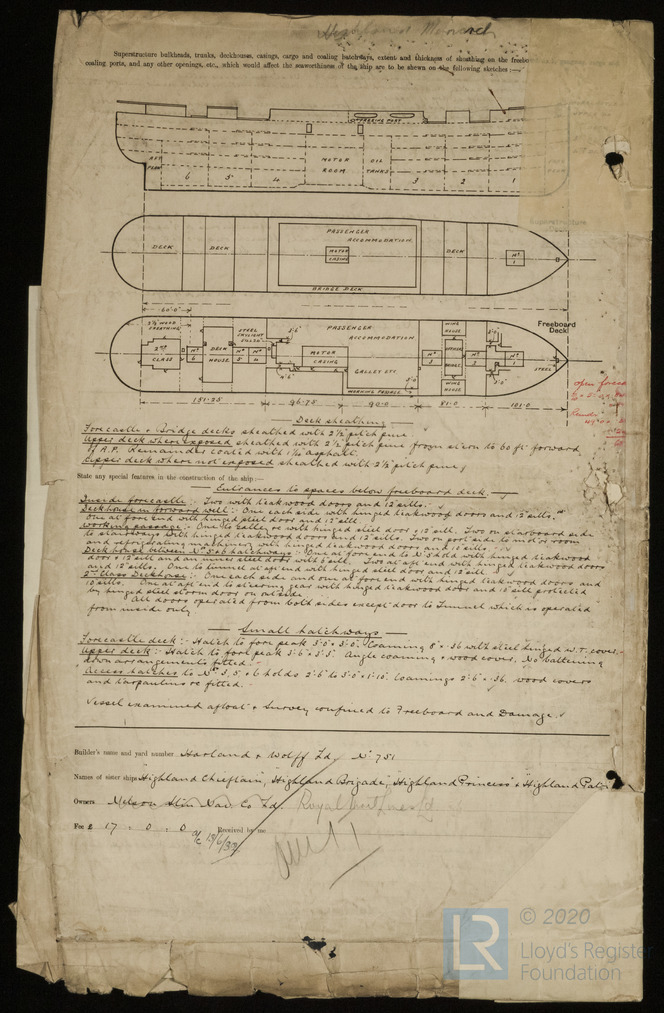 Highland Monarch
Superstructure bulkheads, trunks, deckhouses, casings, cargo and coaling hatchways, extent and thickness of sheathing on the freebo
coaling ports, and any other openings, etc., which would affect the seaworthiness of the ship are to be shewn on the following sketches :—
AFT PEAK
6
5
4
MOTOR ROOM
OIL TANKS
3
2
1
Superstructure
DECK
DECK
PASSENGER ACCOMMODATION
MOTOR CASING
DECK
Nº 1
BRIDGE DECK
60'-0"
2½ WOOD SHEATHING
STEEL SKYLIGHT
PASSENGER ACCOMMODATION
WING HOUSE
Freeboard Deck
2ND CLASS
Nº 6
DECK HOUSE
Nº 5
Nº 4
MOTOR CASING
GALLEY ETC
Nº 3
BRIDGE
Nº 2
Nº 1
STEEL
WING HOUSE
WORKING PASSAGE
151·25
96·75
90·0
81·0
101·0
open foreca
Deck sheathing
Forecastle & Bridge decks sheathed with 2½ pitch pine
Upper deck where exposed sheathed with 2½ pitch pine from stern to 60 ft forward
of A.P. Remainder coated with 1⅛ asphalt.
Upper deck where not exposed sheathed with 2½ pitch pine
State any special features in the construction of the ship :—
Entrances to spaces below freeboard deck.
Inside forecastle :- Two with teakwood doors and 12" sills.
Deckhouse in forward well :- One each side with hinged teakwood doors and 12" sills.
One at fore end with hinged steel door and 12" sill.
Working passage :- One to galley with hinged steel door & 12" sill. Two on starboard side
to stairways with hinged teakwood doors and 12" sills. Two on port side to motor room
and refrigerating machinery with hinged teakwood doors and 12" sills.
Deck house between Nº 5 & 6 hatchways :- One at fore end to Nº 5 hold with hinged teakwood
door & 12" sill and an inner steel door with 6" sill. Two at aft end with hinged teakwood doors
and 12" sills. One to tunnel at aft end with hinged steel door and 12" sill.
2nd Class Deckhouse :- One each side and one at fore end with hinged teakwood doors and
10" sills. One at aft end to steering gear with hinged teakwood door and 18" sill protected
by hinged steel storm door on outside
All doors operated from both sides except door to Tunnel which is operated
from inside only.
Small hatchways
Forecastle deck :- Hatch to fore peak 3'-5" × 3'-0". Coaming 8" × ·36 with steel hinged W.T. cover.
Upper deck :- Hatch to fore peak 3'-6" × 3'-5". Angle coaming & wood cover. No battening
down arrangements fitted.
Access hatches to Nº 3, 5, & 6 holds 2'-6" to 3'-0" × 1'-10". Coamings 2'-6" × ·36. wood covers
and tarpaulins fitted.
Vessel examined afloat & Survey confined to Freeboard and Damage.
Builder's name and yard number Harland & Wolff Ld, Nº 751
Names of sister ships Highland Chieftain, Highland Brigade, Highland Princess & Highland Patriot
Owners Nelson Stm Nav. Co Ld. Royal Mail
Fee £ 17 : 0 : 0 Received by me
© 2020
LR
Lloyd's Register
Foundation